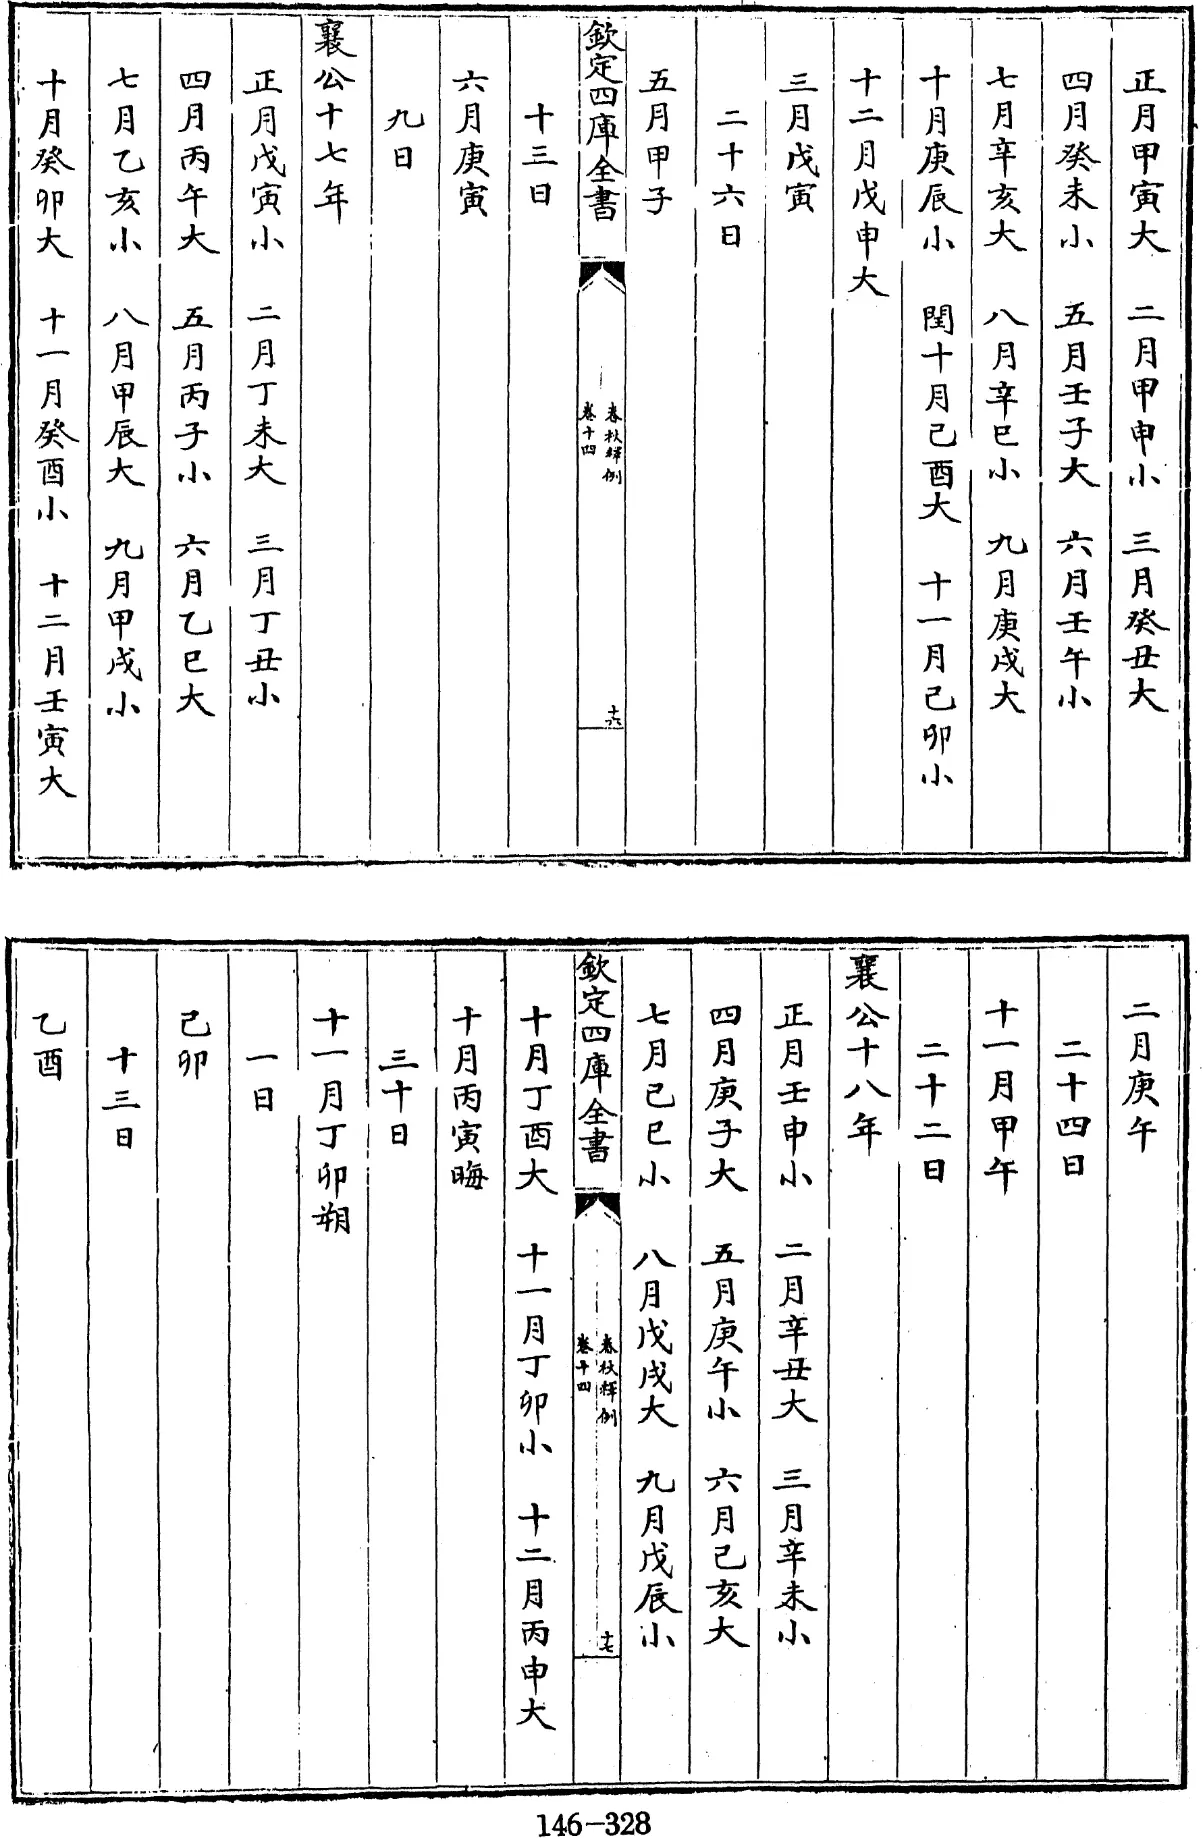 正月甲寅大　二月甲申小　三月癸丑大
四月癸未小　五月壬子大　六月壬午小
七月辛亥大　八月辛巳小　九月庚戌大
十月庚辰小　閏十月己酉大　十一月己卯小
十二月戊申大
三月戊寅
二十六日
五月甲子
欽定四庫全書
春秋釋例
卷十四
十六
十三日
六月庚寅
九日
襄公十七年
正月戊寅小　二月丁未大　三月丁丑小
四月丙午大　五月丙子小　六月乙巳大
七月乙亥小　八月甲辰大　九月甲戌小
十月癸卯大　十一月癸酉小　十二月壬寅大
二月庚午
二十四日
十一月甲午
二十二日
襄公十八年
正月壬申小　二月辛丑大　三月辛未小
四月庚子大　五月庚午小　六月己亥大
七月己巳小　八月戊戌大　九月戊辰小
欽定四庫全書
春秋釋例
卷十四
十七
十月丁酉大　十一月丁卯小　十二月丙申大
十月丙寅晦
三十日
十一月丁卯朔
一日
己卯
十三日
乙酉
146-328